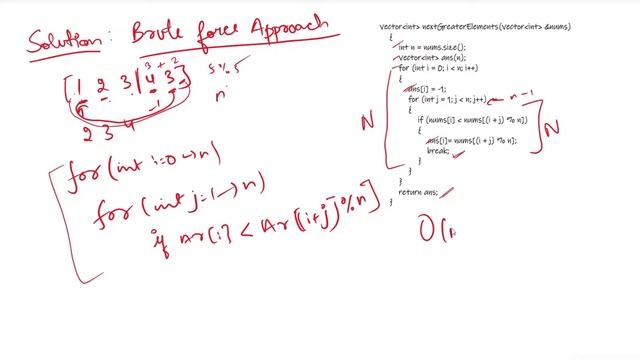 Solution: Brute force Approach
3 + 2
[1 2 3 4 3]
5%5
n
-1
2 3 4
for(int i=0→n)
for(int j=1→n)
if Ar[i] < Ar[(i+j)%n]
vector<int> nextGreaterElements(vector<int> &nums)
{
int n = nums.size();
vector<int> ans(n);
for (int i = 0; i < n; i++)
{
ans[i] = -1;
for (int j = 1; j < n; j++) n-1
{
if (nums[i] < nums[(i + j) % n])
{
ans[i]= nums[(i + j) % n];
break;
}
}
}
return ans;
}
N
N
O(